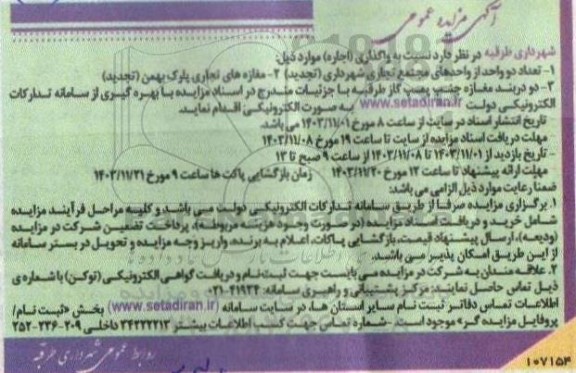 آگهی مزایده عمومی
شهرداری طرقبه در نظر دارد نسبت به واگذاری (اجاره) موارد ذیل:
۱- تعداد دو واحد از واحدهای مجتمع تجاری شهرداری (تجدید) ۲- مغازه های تجاری پارک بهمن (تجدید)
۳- دو دربند مغازه جنب پمپ گاز طرقبه با جزئیات مندرج در اسناد مزایده با بهره گیری از سامانه تدارکات
الکترونیکی دولت www.setadiran.ir به صورت الکترونیکی اقدام نماید.
تاریخ انتشار اسناد در سایت از ساعت ۸ مورخ ۱۴۰۳/۱۱/۰۱ می باشد.
مهلت دریافت اسناد مزایده از سایت تا ساعت ۱۹ مورخ ۱۴۰۳/۱۱/۰۸
- تاریخ بازدید از ۱۴۰۳/۱۱/۰۱ تا ۱۴۰۳/۱۱/۰۸ از ساعت ۹ صبح تا ۱۳
مهلت ارائه پیشنهاد تا ساعت ۱۲ مورخ ۱۴۰۳/۱۱/۲۰ زمان بازگشایی پاکت ها ساعت ۹ مورخ ۱۴۰۳/۱۱/۲۱
ضمنا رعایت موارد ذیل الزامی می باشد:
۱. برگزاری مزایده صرفا از طریق سامانه تدارکات الکترونیکی دولت می باشد و کلیه مراحل فرآیند مزایده
شامل خرید و دریافت اسناد مزایده (در صورت وجود هزینه مربوطه)، پرداخت تضمین شرکت در مزایده
(ودیعه)، ارسال پیشنهاد قیمت، بازگشایی پاکات، اعلام به برنده، واریز وجه مزایده و تحویل در بستر سامانه
از این طریق امکان پذیر می باشد.
۲. علاقه مندان به شرکت در مزایده می بایست جهت ثبت نام و دریافت گواهی الکترونیکی (توکن) با شماره ی
ذیل تماس حاصل نمایند: مرکز پشتیبانی و راهبری سامانه: ۴۱۹۳۴-۰۲۱
اطلاعات تماس دفاتر ثبت نام سایر استان ها، در سایت سامانه (www.setadiran.ir) بخش «ثبت نام/
پروفایل مزایده گر» موجود است. -شماره تماس جهت کسب اطلاعات بیشتر ۳۴۲۲۲۲۱۳ داخلی ۲۰۹-۲۳۶-۲۵۲
روابط عمومی شهرداری طرقبه
۱۰۷۱۵۴